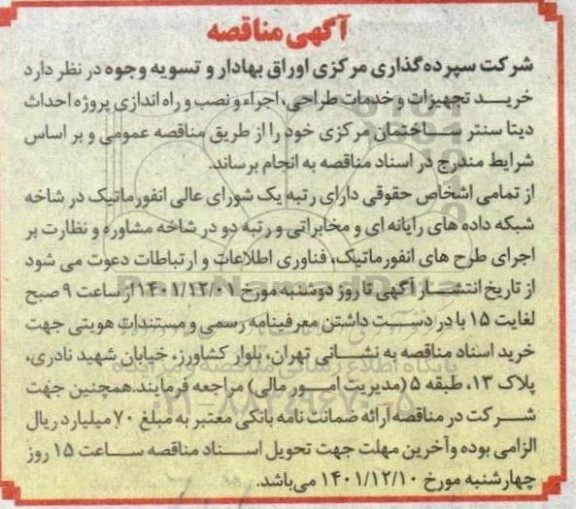 آگهی مناقصه
شرکت سپرده‌گذاری مرکزی اوراق بهادار و تسویه وجوه در نظر دارد
خریـــد تجهیزات و خدمات طراحی، اجراء و نصب و راه اندازی پروژه احداث
دیتا سنتر ســـاختمان مرکزی خود را از طریق مناقصه عمومی و بر اساس
شرایط مندرج در اسناد مناقصه به انجام برساند.
از تمامی اشخاص حقوقی دارای رتبه یک شورای عالی انفورماتیک در شاخه
شبکه داده های رایانه ای و مخابراتی و رتبه دو در شاخه مشاوره و نظارت بر
اجرای طرح های انفورماتیک، فناوری اطلاعات و ارتباطات دعوت می شود
از تاریخ انتشـــار آگهی تا روز دوشنبه مورخ ۱۴۰۱/۱۲/۰۱ از ساعت ۹ صبح
لغایت ۱۵ با در دســـت داشتن معرفینامه رسمی و مستندات هویتی جهت
خرید اسناد مناقصه به نشـــانی تهران، بلوار کشاورز، خیابان شهید نادری،
پلاک ۱۳، طبقه ۵ (مدیریت امـــور مالی) مراجعه فرمایند.همچنین جهت
شـــرکت در مناقصه ارائه ضمانت نامه بانکی معتبر به مبلغ ۷۰ میلیارد ریال
الزامی بوده و آخرین مهلت جهت تحویل اســـناد مناقصه ســـاعت ۱۵ روز
چهارشنبه مورخ ۱۴۰۱/۱۲/۱۰ می‌باشد.
پایگاه اطلاع رسانی مناقصه و مزایده
۰۲۱-۸۸۳۴۹۶۷۰-۵